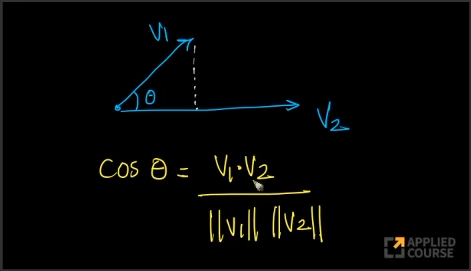 V1
θ
V2
cos θ = V1·V2
||V1|| ||V2||
APPLIED
COURSE